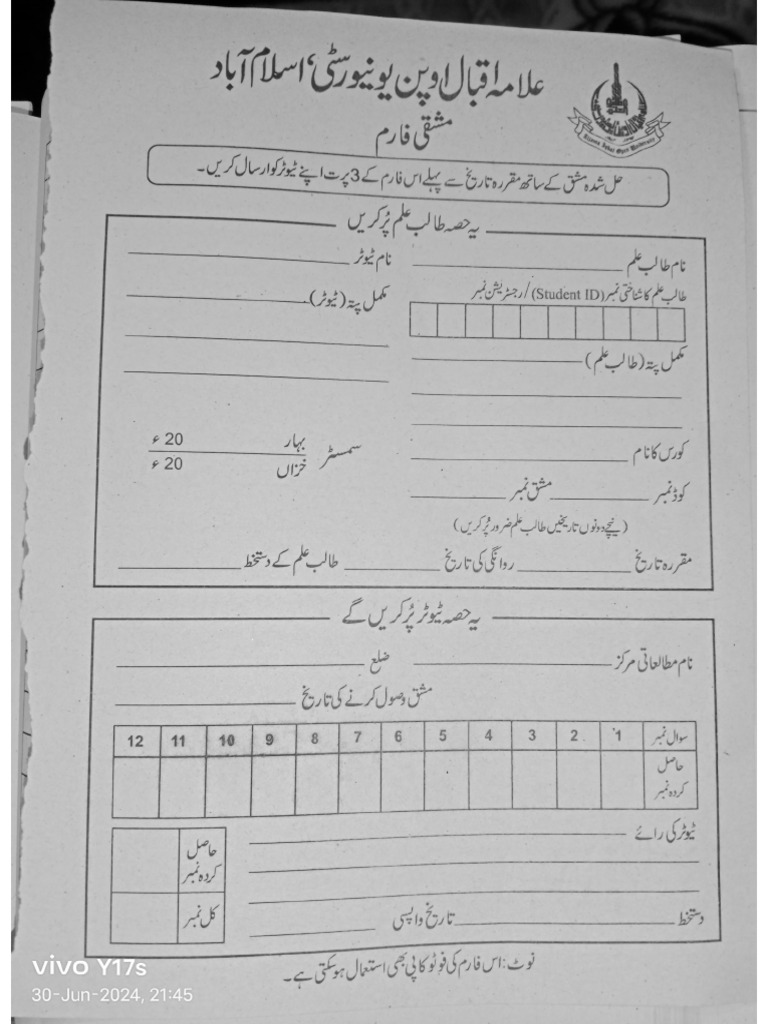 علامہ اقبال اوپن یونیورسٹی، اسلام آباد
Allama Iqbal Open University
مشقی فارم
حل شدہ مشق کے ساتھ مقررہ تاریخ سے پہلے اس فارم کے 3 پرت اپنے ٹیوٹر کو ارسال کریں۔
یہ حصہ طالب علم پُر کریں
نام طالب علم
نام ٹیوٹر
طالب علم کا شناختی نمبر (Student ID) / رجسٹریشن نمبر
مکمل پتہ (ٹیوٹر)
مکمل پتہ (طالب علم)
کورس کا نام
سمسٹر
بہار 20 ء
خزاں 20 ء
کوڈ نمبر مشق نمبر
(نیچے دونوں تاریخیں طالب علم ضرور پُر کریں)
مقررہ تاریخ روانگی کی تاریخ طالب علم کے دستخط
یہ حصہ ٹیوٹر پُر کریں گے
نام مطالعاتی مرکز ضلع
مشق وصول کرنے کی تاریخ
سوال نمبر 1 2 3 4 5 6 7 8 9 10 11 12
حاصل کردہ نمبر
ٹیوٹر کی رائے
حاصل کردہ نمبر
کل نمبر
دستخط تاریخ واپسی
نوٹ: اس فارم کی فوٹو کاپی بھی استعمال ہو سکتی ہے۔
vivo Y17s
30-Jun-2024, 21:45